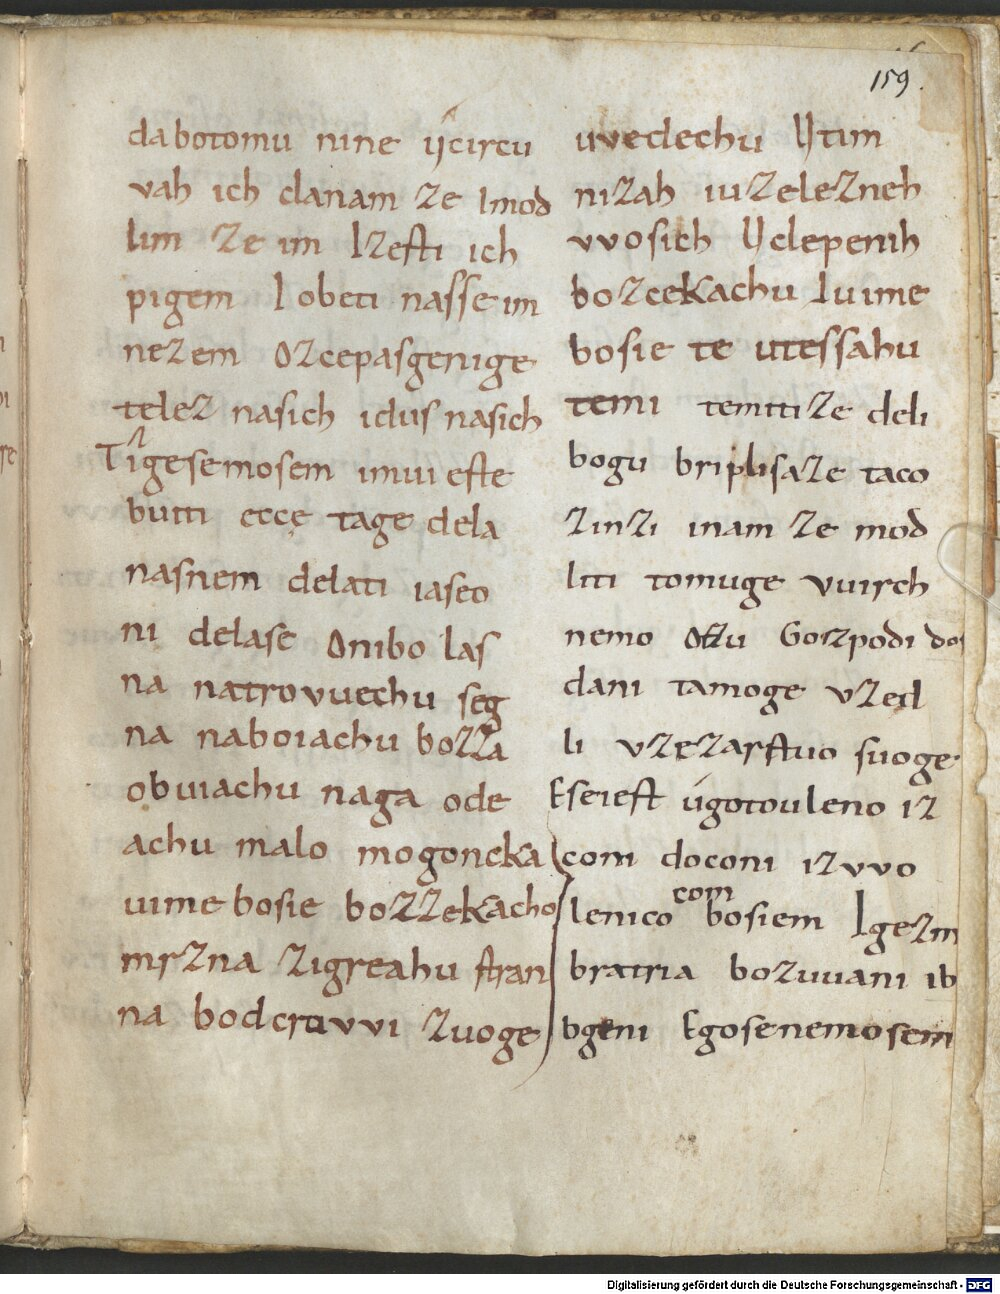 159
dabotomu nine ijcircu
vah ich clanam ze Imod
lim ze im Izesti ich
pigem I obeti nasse im
nezem ozcepasgenige
telez nasich idus nasich
Tigesemosem imui este
buiti ecce tage dela
nasnem delati iaseo
ni delase Onibo las
na natrovuechu seg
na naboiachu bozza
obuiachu naga ode
achu malo mogoncka
uime bosie bozzekacho
mrzna zigreahu stran
na bodcrovvi zuoge
uvedechu Ijtim
nizah iuzelezneh
vvosich Ijclepenih
bozcekachu Iuime
bosie te utessahu
temi temitize deli
bogu briplisaze taco
zinzi inam ze mod
liti tomuge vuirch
nemo Otzu Gozpodi dos
dani tamoge vzed
li vzezarstuo suoge
Eseiest ugotouleno iz
coni doconi izvvo
lenico com bosiem Igezm
bratria bozuuani ib
bgeni Egosenemosem
Digitalisierung gefördert durch die Deutsche Forschungsgemeinschaft - DFG